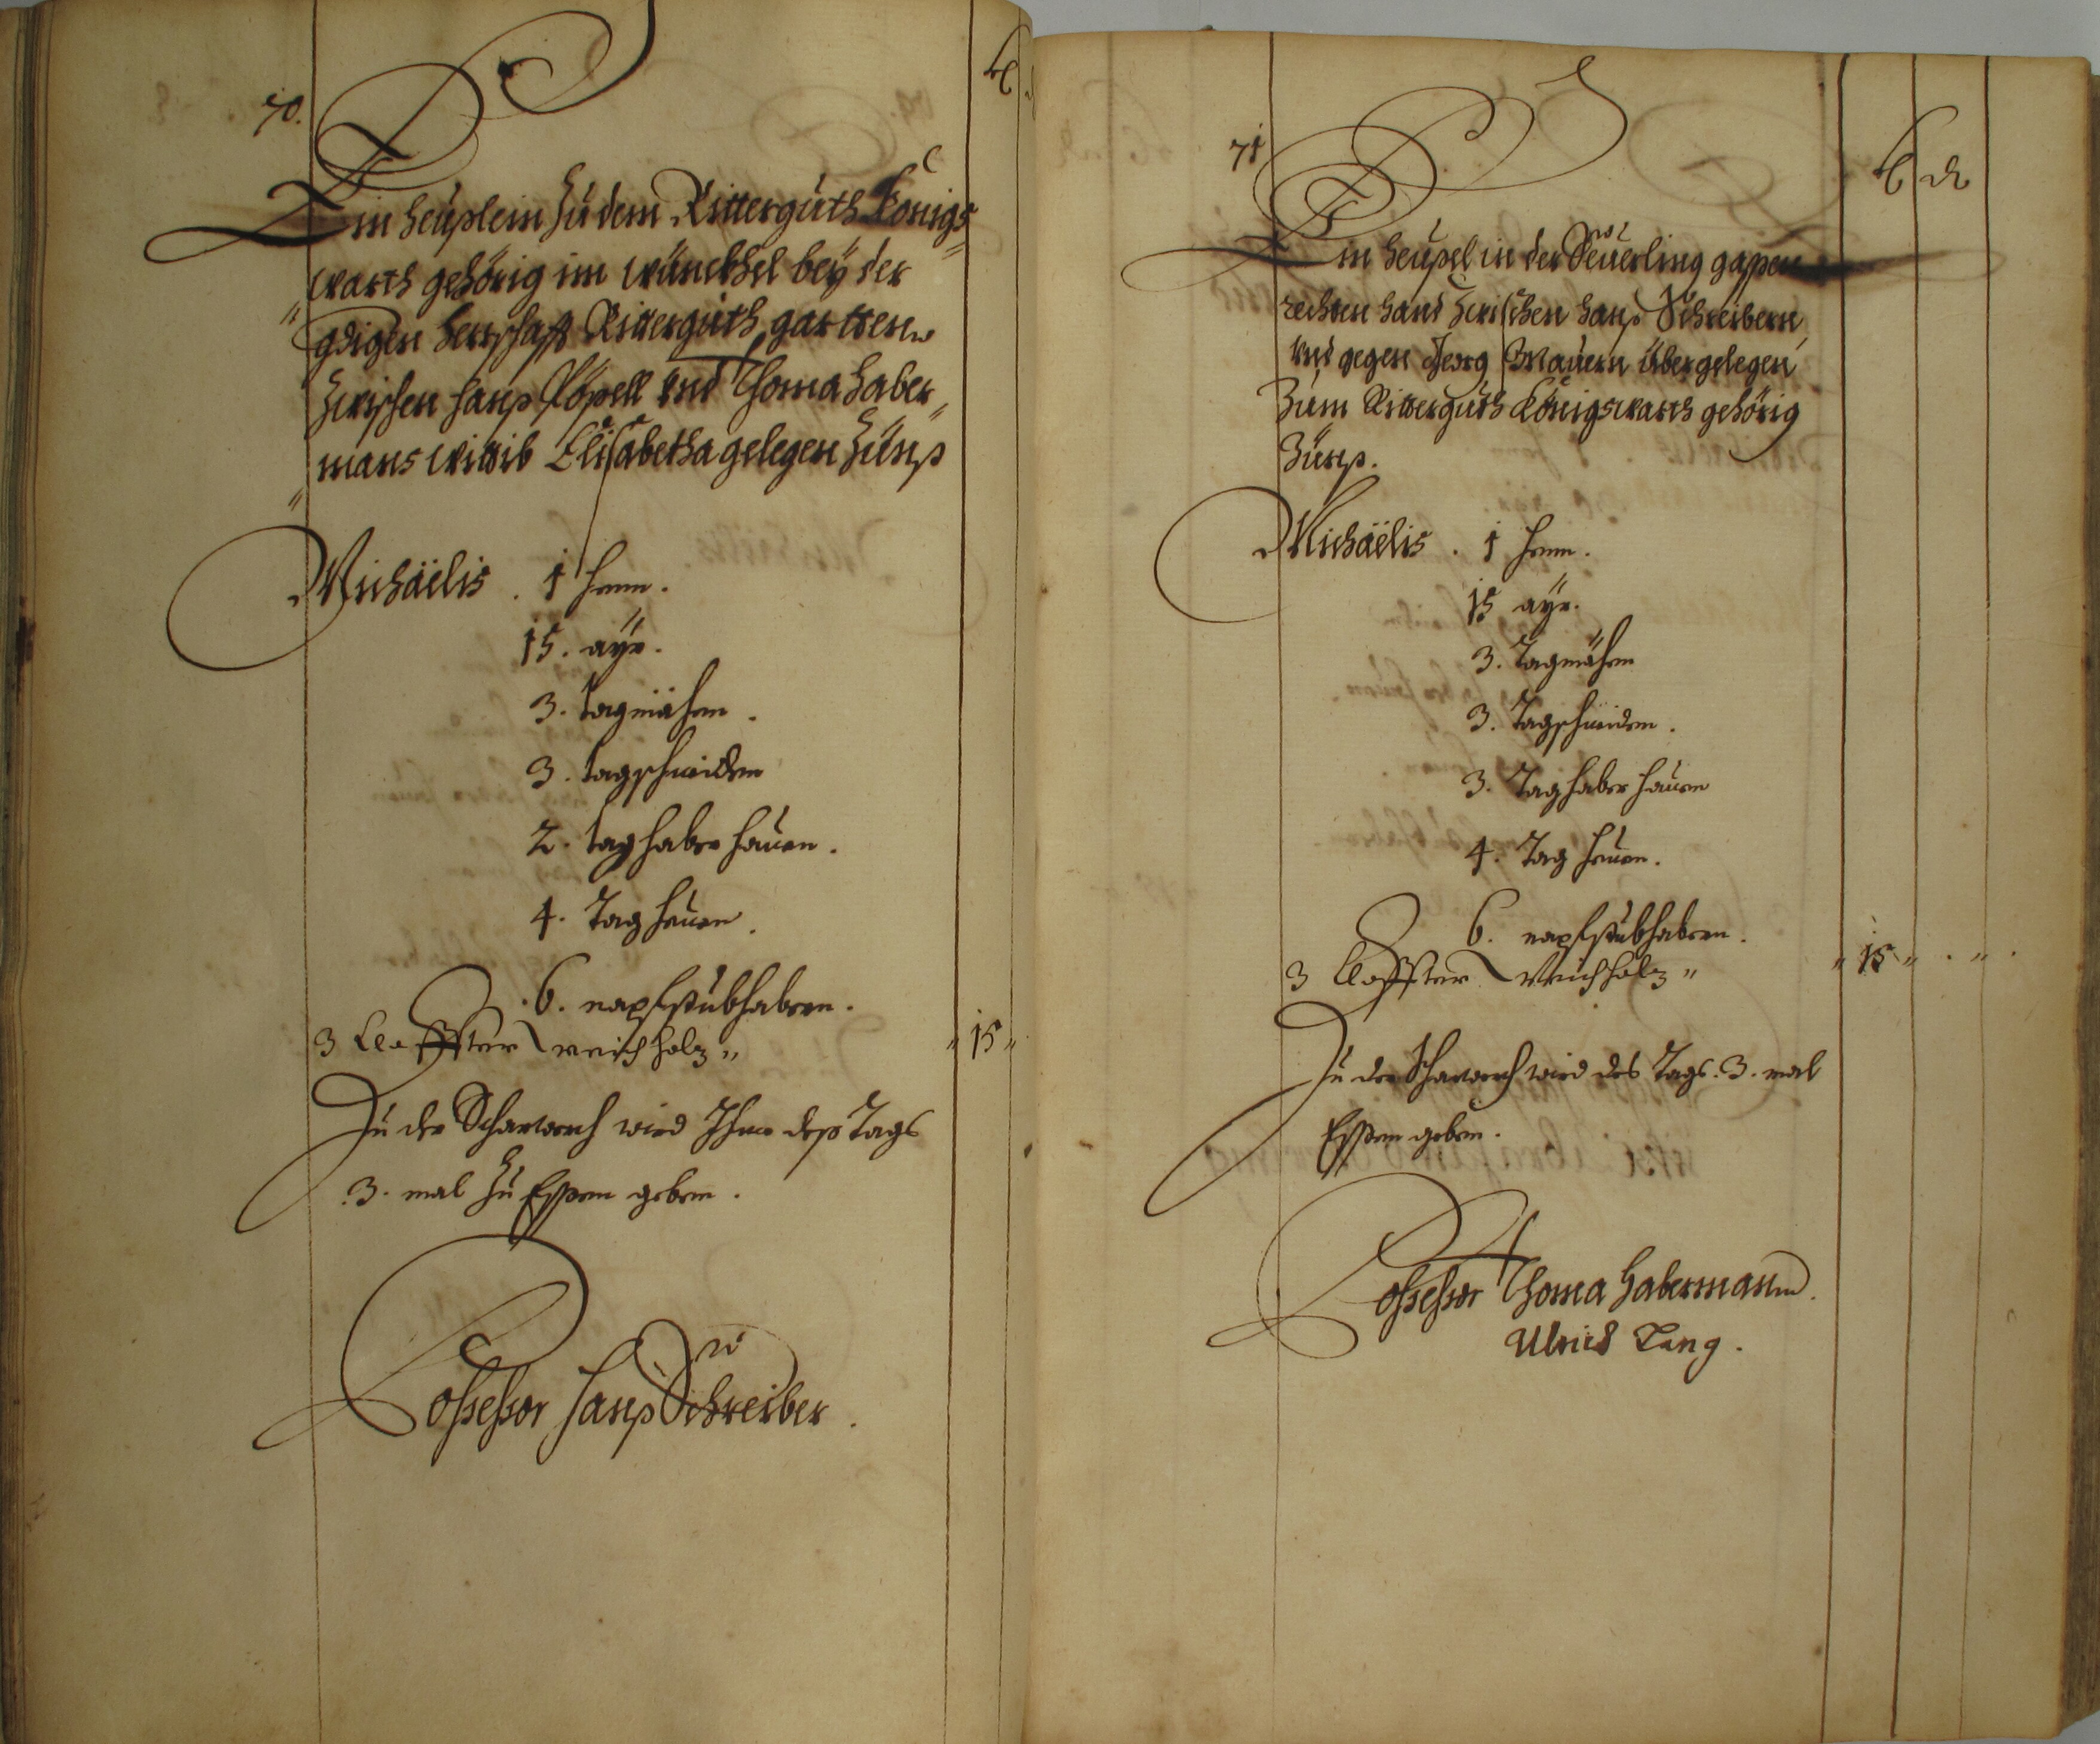 70.
Ein heußlein zu dem Ritterguth Königs
warth gehörig im wünckhel beÿ der
gdigen herrschafft Ritterguth gartten
zwischen hanß Köpell und Thoma haber
mans wittib Elisabetha gelegen zünß
Michaëlis . 1 henn .
15 . aÿr .
3 . tag mähen .
3 . tag schneiden
2 . tag haber hauen .
4 . Tag heuen .
6 . napf staubhabern .
3 Claffter weichholz
15
Zu der Scharwerch wird Ihme deß Tags
3 . mal zu Essen geben .
Possessor hanß Schreiber .
71
ß d
Ein heußel in der Seuerling gassen
rechten hand zwischen hanß Schreibern
und gegen Georg Mauern über gelegen
zum Ritterguth Königswarth gehörig
zünß .
Michaëlis . 1 henn .
15 aÿr .
3 . Tag mähen
3 . Tag schneiden .
3 . Tag haber hauen
4 . Tag heuen .
6 . napf staubhabern .
3 Claffter weichholz
15
Zu der Scharwerch wird des Tags . 3 . mal
Essen geben .
Possessor Thoma habermann .
Ulrich Lang .